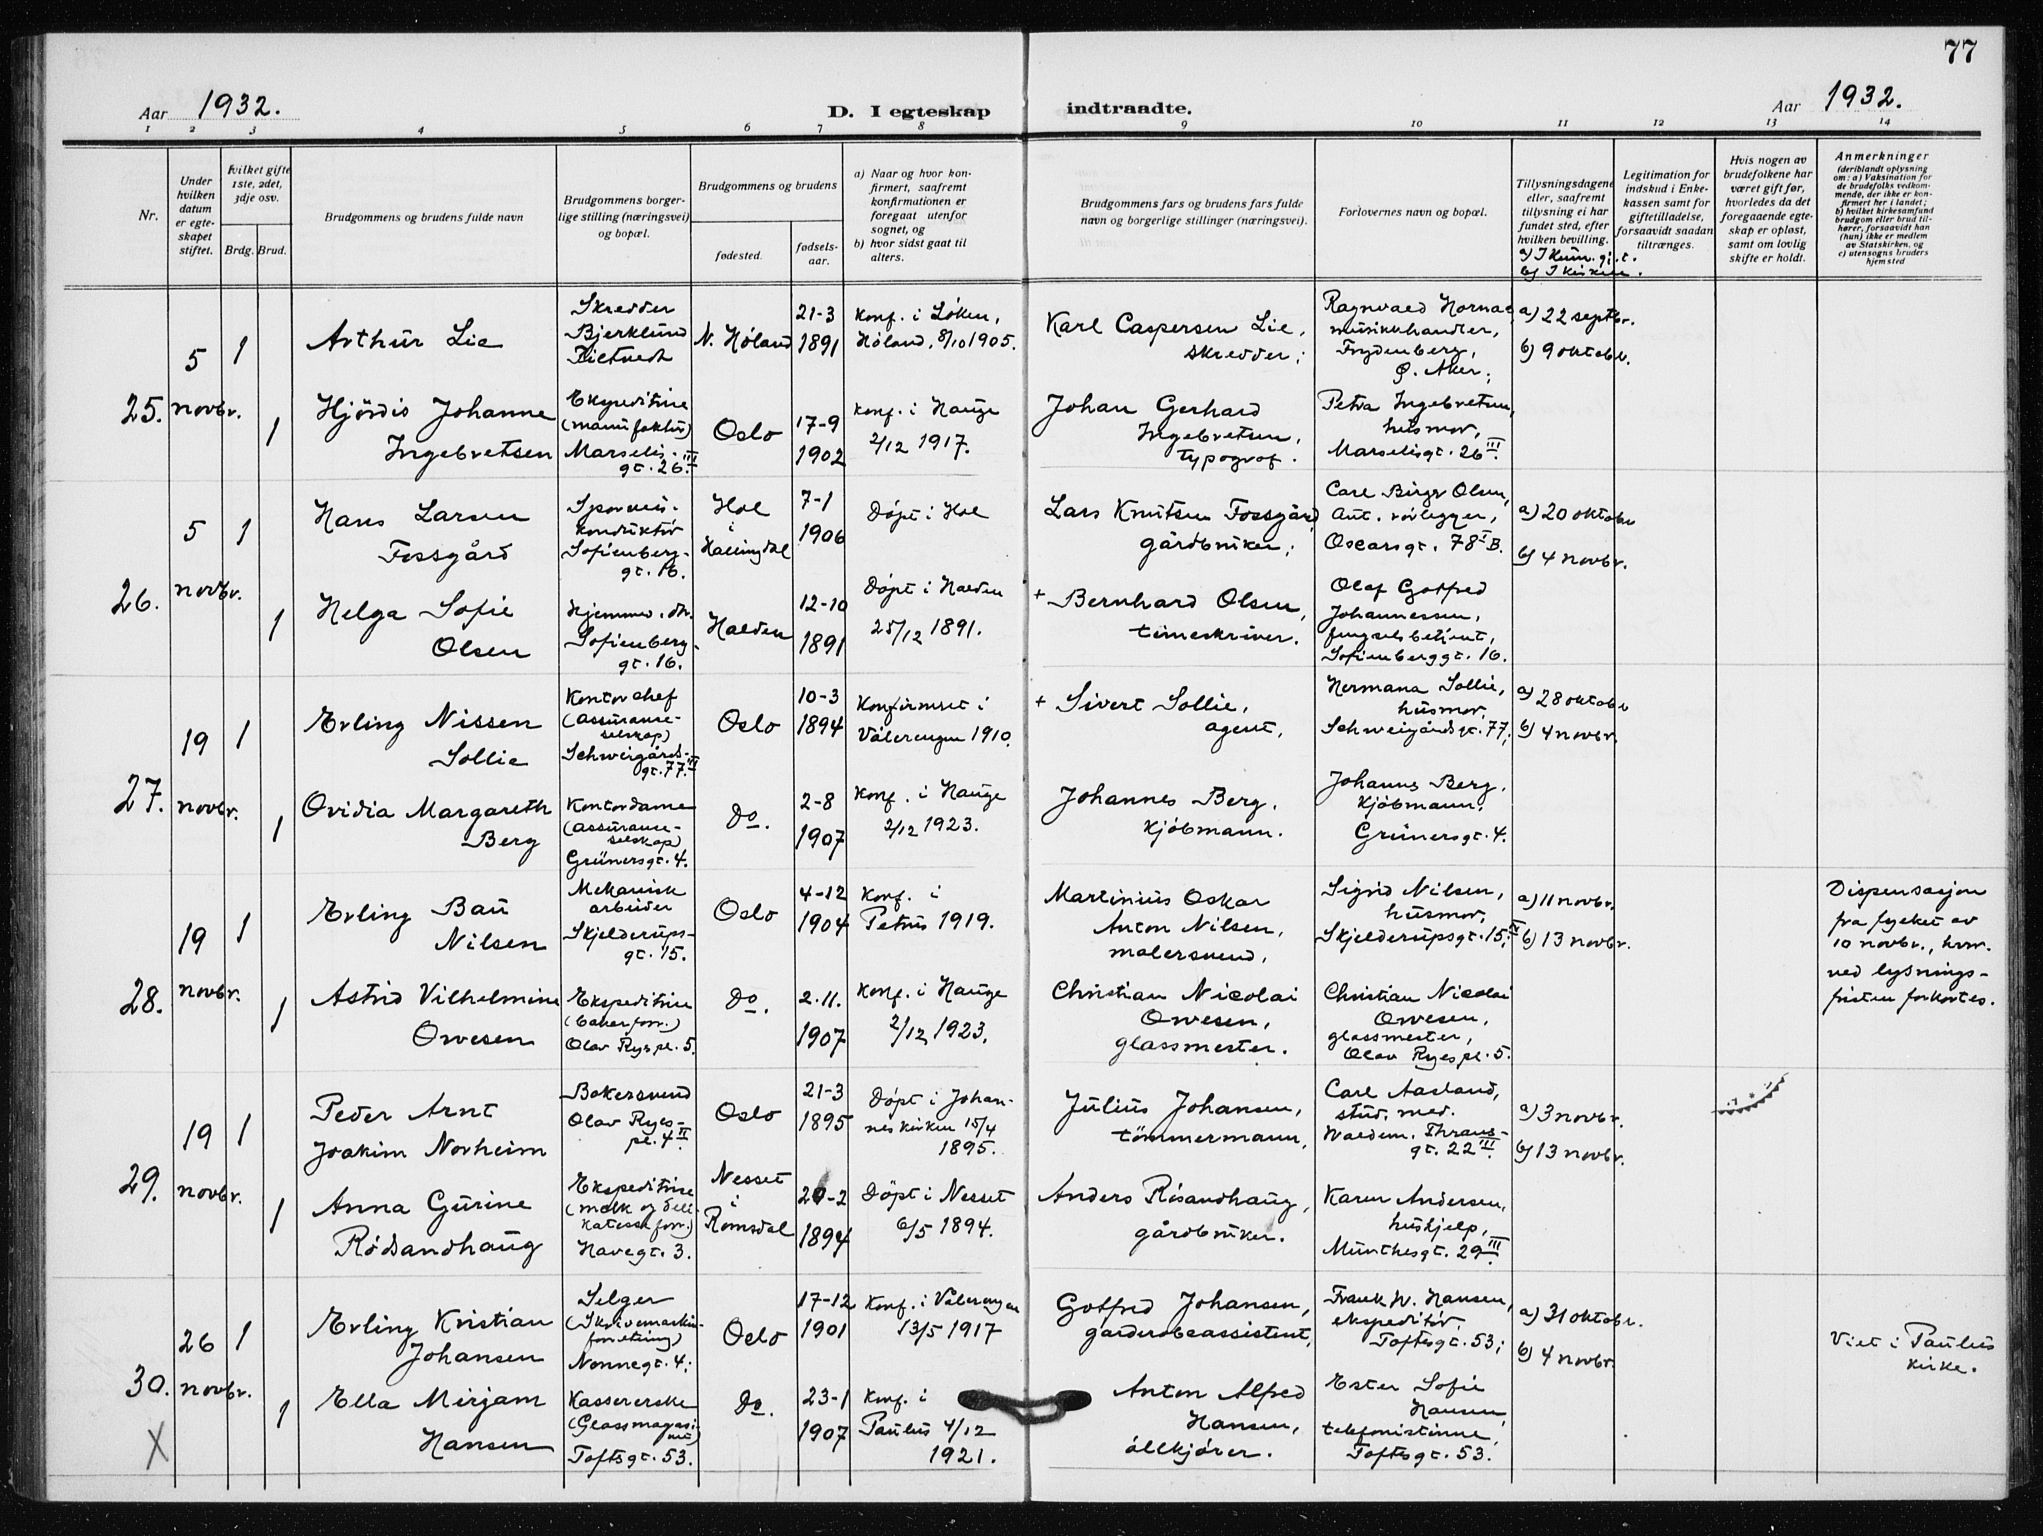 77
Aar 1932. D. I egteskap indtraadte. Aar 1932.
1 2 3 4 5 6 7 8 9 10 11 12 13 14
Nr.
Under hvilken datum er egteskapet stiftet.
Hvilket gifte 1ste, 2det, 3dje osv.
Brdg. Brud.
Brudgommens og brudens fulde navn
Brudgommens borgerlige stilling (næringsvei) og bopæl.
Brudgommens og brudens
fødested.
fødselsaar.
a) Naar og hvor konfirmert, saafremt konfirmationen er foregaat utenfor sognet, og
b) hvor sidst gaat til alters.
Brudgommens fars og brudens fars fulde navn og borgerlige stillinger (næringsvei).
Forlovernes navn og bopæl.
Tillysningsdagene eller, saafremt tillysning ei har fundet sted, efter hvilken bevilling.
b) I kirken.
Legitimation for indskud i Enkekassen samt for giftetilladelse, forsaavidt saadan tiltrænges.
Hvis nogen av brudefolkene har været gift før, hvorledes da det foregaaende egteskap er opløst, samt om lovlig skifte er holdt.
Anmerkninger
(deriblandt oplysning om: a) Vaksination for de brudefolks vedkommende, der ikke er konfirmert her i landet; b) hvilket kirkesamfund brudgom eller brud tilhører, forsaavidt han (hun) ikke er medlem av Statskirken, og c) utensogns bruders hjemsted
25.
5 novbr.
1
Arthur Lie
Skredder
Bjerklund
N. Høland
21-3
1891
Konf. i Løken,
Høland, 8/10 1905.
Karl Caspersen Lie,
skredder;
musikkhandler,
Frydenberg,
Ø. Aker;
a) 22 septbr.
b) 9 oktobr.
1
Hjördis Johanne
Ingebretsen
Ekspeditrise
(manufaktur)
Marselis-
gt. 26 III
Oslo
17-9
1902
Konf. i Hauge
2/12 1917.
Johan Gerhard
Ingebretsen,
typograf.
Petra Ingebretsen,
husmor,
Marselisgt. 26 III.
26.
5 novbr.
1
Hans Larsen
Fossgård
Sporveis-
konduktør
Sofienberg-
gt. 16.
Hol
i
Hallingdal
7-1
1906
Döpt i Hol
Lars Knutsen Fossgård
gårdbruker;
Carl Birger Olsen,
Aut. rörlegger,
Oscarsgt. 78 I B.
a) 20 oktobr
b) 4 novbr.
1
Helga Sofie
Olsen
Hjemmev. dtr.
Sofienberg-
gt. 16.
Halden
12-10
1891
Döpt i Halden
25/12 1891.
+ Bernhard Olsen,
timeskriver.
Olaf Gotfred
Johannessen,
fengselsbetjent,
Sofienberggt. 16.
27.
19 novbr.
1
Erling Nissen
Sollie
Kontorchef
(assuranse-
selskap)
Schweigårds-
gt. 77 III
Oslo
10-3
1894
Konfirmert i
Vålerengen 1910.
+ Sivert Sollie,
agent.
Hermana Sollie,
husmor,
Schweigårdsgt. 77;
a) 28 oktobr
b) 4 novbr.
1
Ovidia Margareth
Berg
Kontordame
(assuranse-
selskap)
Grünersgt. 4.
Do.
2-8
1907
Konf. i Hauge
2/12 1923.
Johannes Berg.
kjöbmann.
Johannes Berg.
kjöbmann.
Grünersgt. 4.
28.
19 novbr.
1
Erling Bau
Nilsen
Mekanisk
arbeider
Skjelderups-
gt. 15.
Oslo
4-12
1904
Konf. i
Petrus 1919.
Martinius Oskar
Anton Nilsen,
malersvend,
Sigrid Nilsen,
husmor,
Skjelderupsgt. 15 IV;
a) 11 novbr.
b) 13 novbr.
Dispensasjon
fra fylket av
10 novbr., hvor-
ved lysnings-
fristen forkortes.
1
Astrid Vilhelmine
Orvesen
Ekspeditrise
(bakerforr.)
Olav Ryes pl. 5.
Do.
2.11.
1907
Konf. i Hauge
2/12 1923.
Christian Nicolai
Orvesen,
glassmester.
Christian Nicolai
Orvesen,
glassmester,
Olav Ryes pl. 5.
29.
19 novbr.
1
Peder Arnt
Joakim Norheim
Bakersvend
Olav Ryes-
pl. 4 II
Oslo
21-3
1895
Döpt i Johan-
neskirken 15/4
1895.
Julius Johansen,
tömmermann,
Carl Aasland,
stud. med.
Waldem. Thranes-
gt. 22 III
a) 3 novbr.
b) 13 novbr.
1
Anna Gurine
Rödsandhaug
Ekspeditrise
(melk og deli-
katesseforr.)
Havegt. 3.
Nesset
i
Romsdal
20-2
1894
Döpt i Nesset
6/5 1894.
Anders Rösandhaug,
gårdbruker.
Karen Andersen,
hushjelp,
Munthesgt. 29 III
30.
26 novbr.
1
Erling Kristian
Johansen
Selger
(Skrivemaskin-
forretning)
Nonnegt. 4;
Oslo
17-12
1901
Konf. i Vålerengen
13/5 1917
Gotfred Johansen,
garderobeassistent,
Frank W. Hansen,
ekspeditör,
Toftesgt. 53;
a) 31 oktobr.
b) 4 novbr.
Viet i Paulus
kirke.
1
Ella Mirjam
Hansen
Kassererske
(Glassmagasi-
net)
Toftesgt. 53.
Do.
23-1
1907
Konf. i
Paulus 4/12
1921.
Anton Alfred
Hansen,
ölkjörer.
Ester Sofie
Hansen,
telefonistinne,
Toftesgt. 53.
X